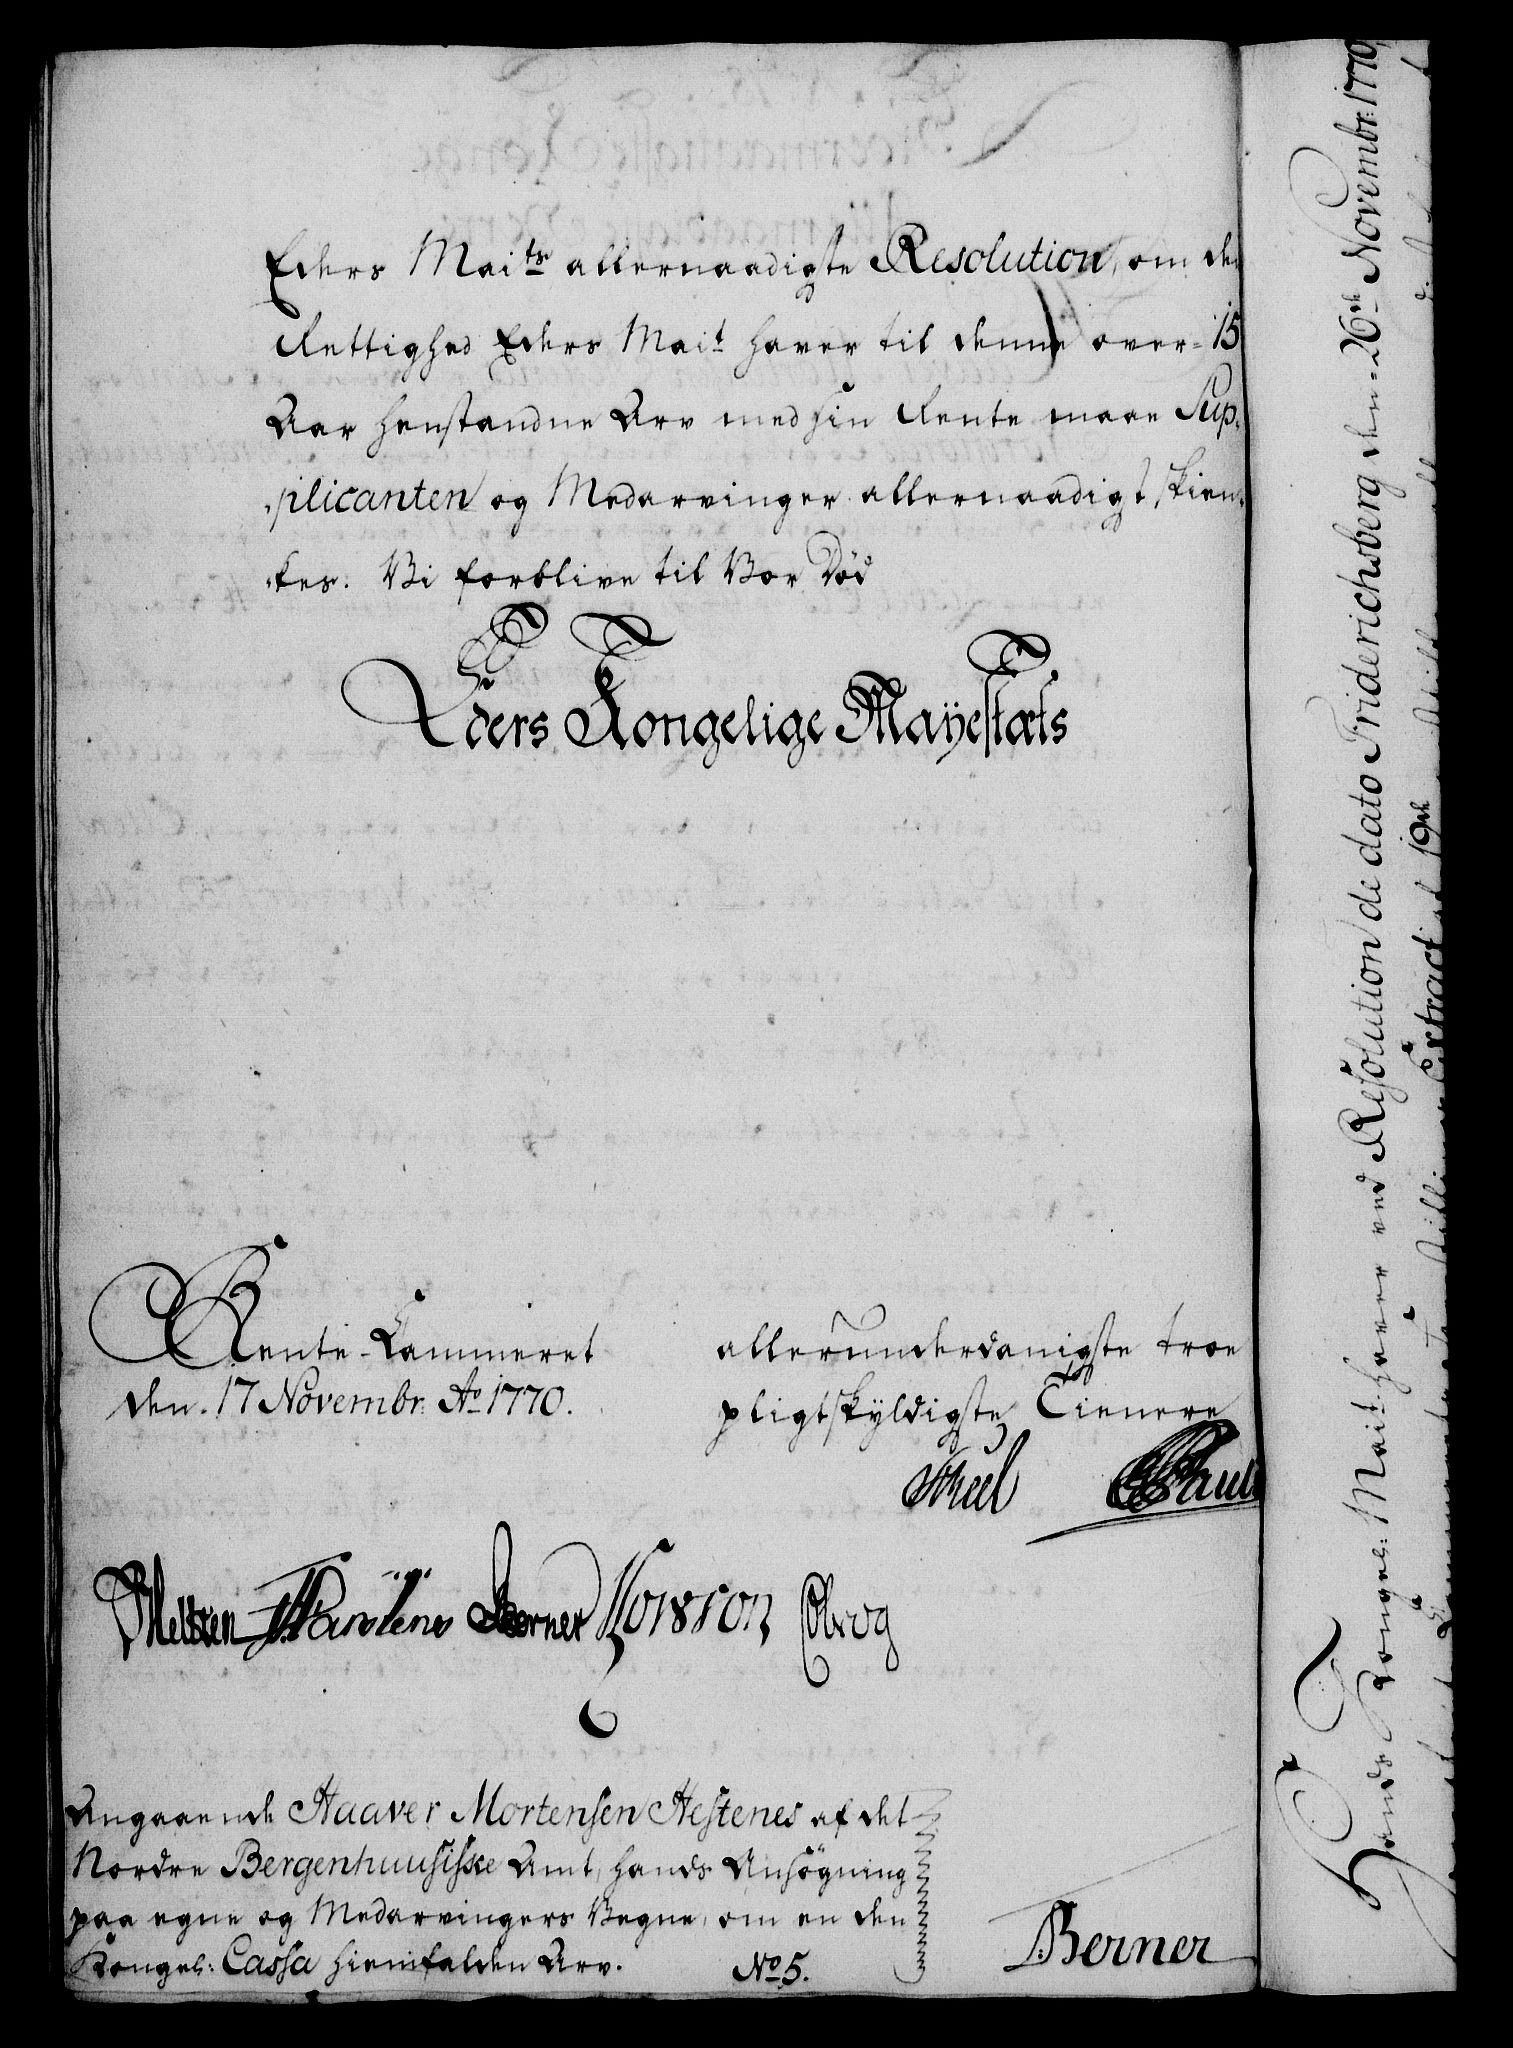 Eders Maits allernaadigste Resolution, om den
Rettighed Eders Mait haver til denne over 15
Aar henstandne Arv med sin Rente maae Sup-
plicanten og Medarvinger allernaadigst skien-
kes. Vi forblive til Vor Død
Eders Kongelige Mayestæts
Rente-Cammeret
den 17 Novembr: Ao 1770.
allerunderdanigste troe
pligtskyldigste Tienere
Skeel
Berner
Angaaende Haaver Mortensen Hestenes af det
Nordre Bergenhuusiske Amt, hands Ansøgning
paa egne og Medarvingers Vegne, om en den
Kongel: Cassa hiemfalden Arv.
No 5.
Berner
Hands Kongel: Mait haver ved Resolution de dato Friderichsberg den 26de Novembr: 1770
Extract 19de